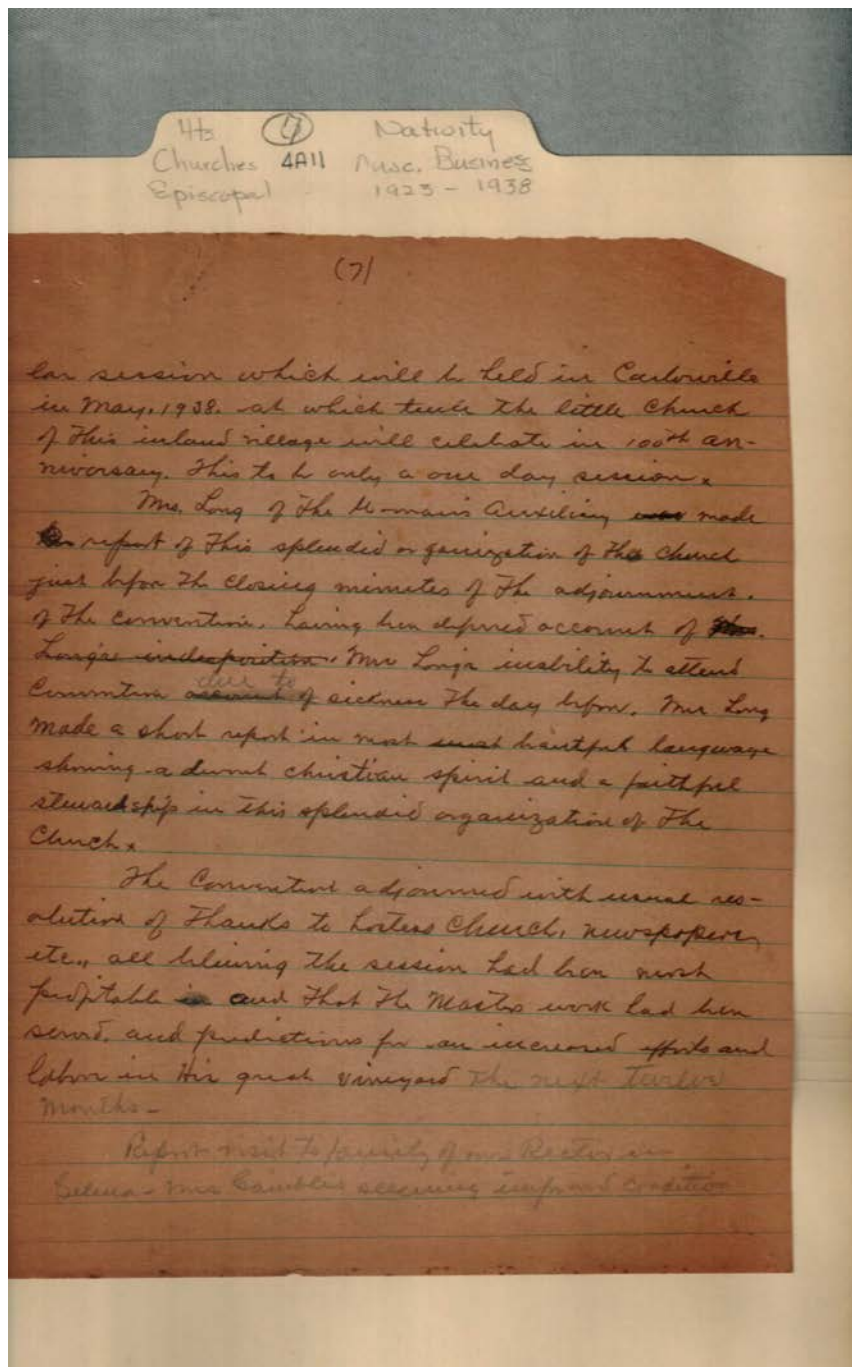 Hts. (7) Nativity
Churches 4A11 Misc. Business
Episcopal 1923 - 1938
(7)
lar session which will be held in Carlowville
in May, 1938. at which time the little Church
of this inland village will celebrate its 100th an-
niversary. This to be only a one day session.
Mrs. Long of the Womans Auxiliary was made
report of this splendid organization of the church
just before the closing minutes of the adjournment.
of the convention. having been deferred account of Mrs.
Longs indisposition. Mrs Longs inability to attend
due to
Convention account of sickness the day before. Mrs Long
made a short report in most most beautiful language
showing a devout christian spirit and a faithful
stewardship in this splendid organization of the
Church.
The Convention adjourned with usual res-
olution of Thanks to hostess Church, newspapers,
etc., all believing the session had been most
profitable and that the Masters work had been
served. and predictions for an increased efforts and
labor in His great vineyard the next twelve
months -
Report visit to family of our Rector in
Selma - Mrs Gambles seeming improved condition